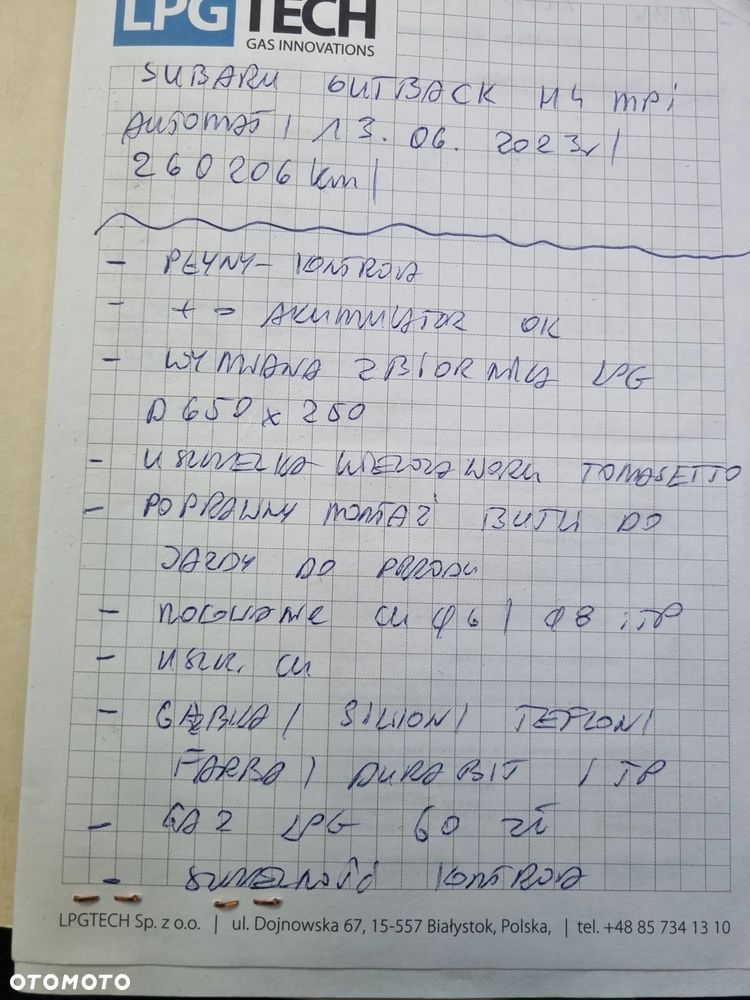 LPGTECH
GAS INNOVATIONS
SUBARU OUTBACK H4 MPi
AUTOMAT | 13. 06. 2023r |
260206 km |
- PŁYNY - KONTROLA
- + - AKUMULATOR OK
- WYMIANA ZBIORNIKA LPG
D 650 x 250
- USZCZELKA WIELOZAWORU TOMASETTO
- POPRAWNY MONTAŻ BUTLI DO
JAZDY DO PRZODU
- MOCOWANIE CU φ6 | φ8 iTP
- USZK. CU
- GĄBKA | SILIKON | TEFLON |
FARBA | DURABIT | TP
- GAZ LPG 60 zł
- SZCZELNOŚĆ KONTROLA
LPGTECH Sp. z o.o. | ul. Dojnowska 67, 15-557 Białystok, Polska, | tel. +48 85 734 13 10
OTOMOTO